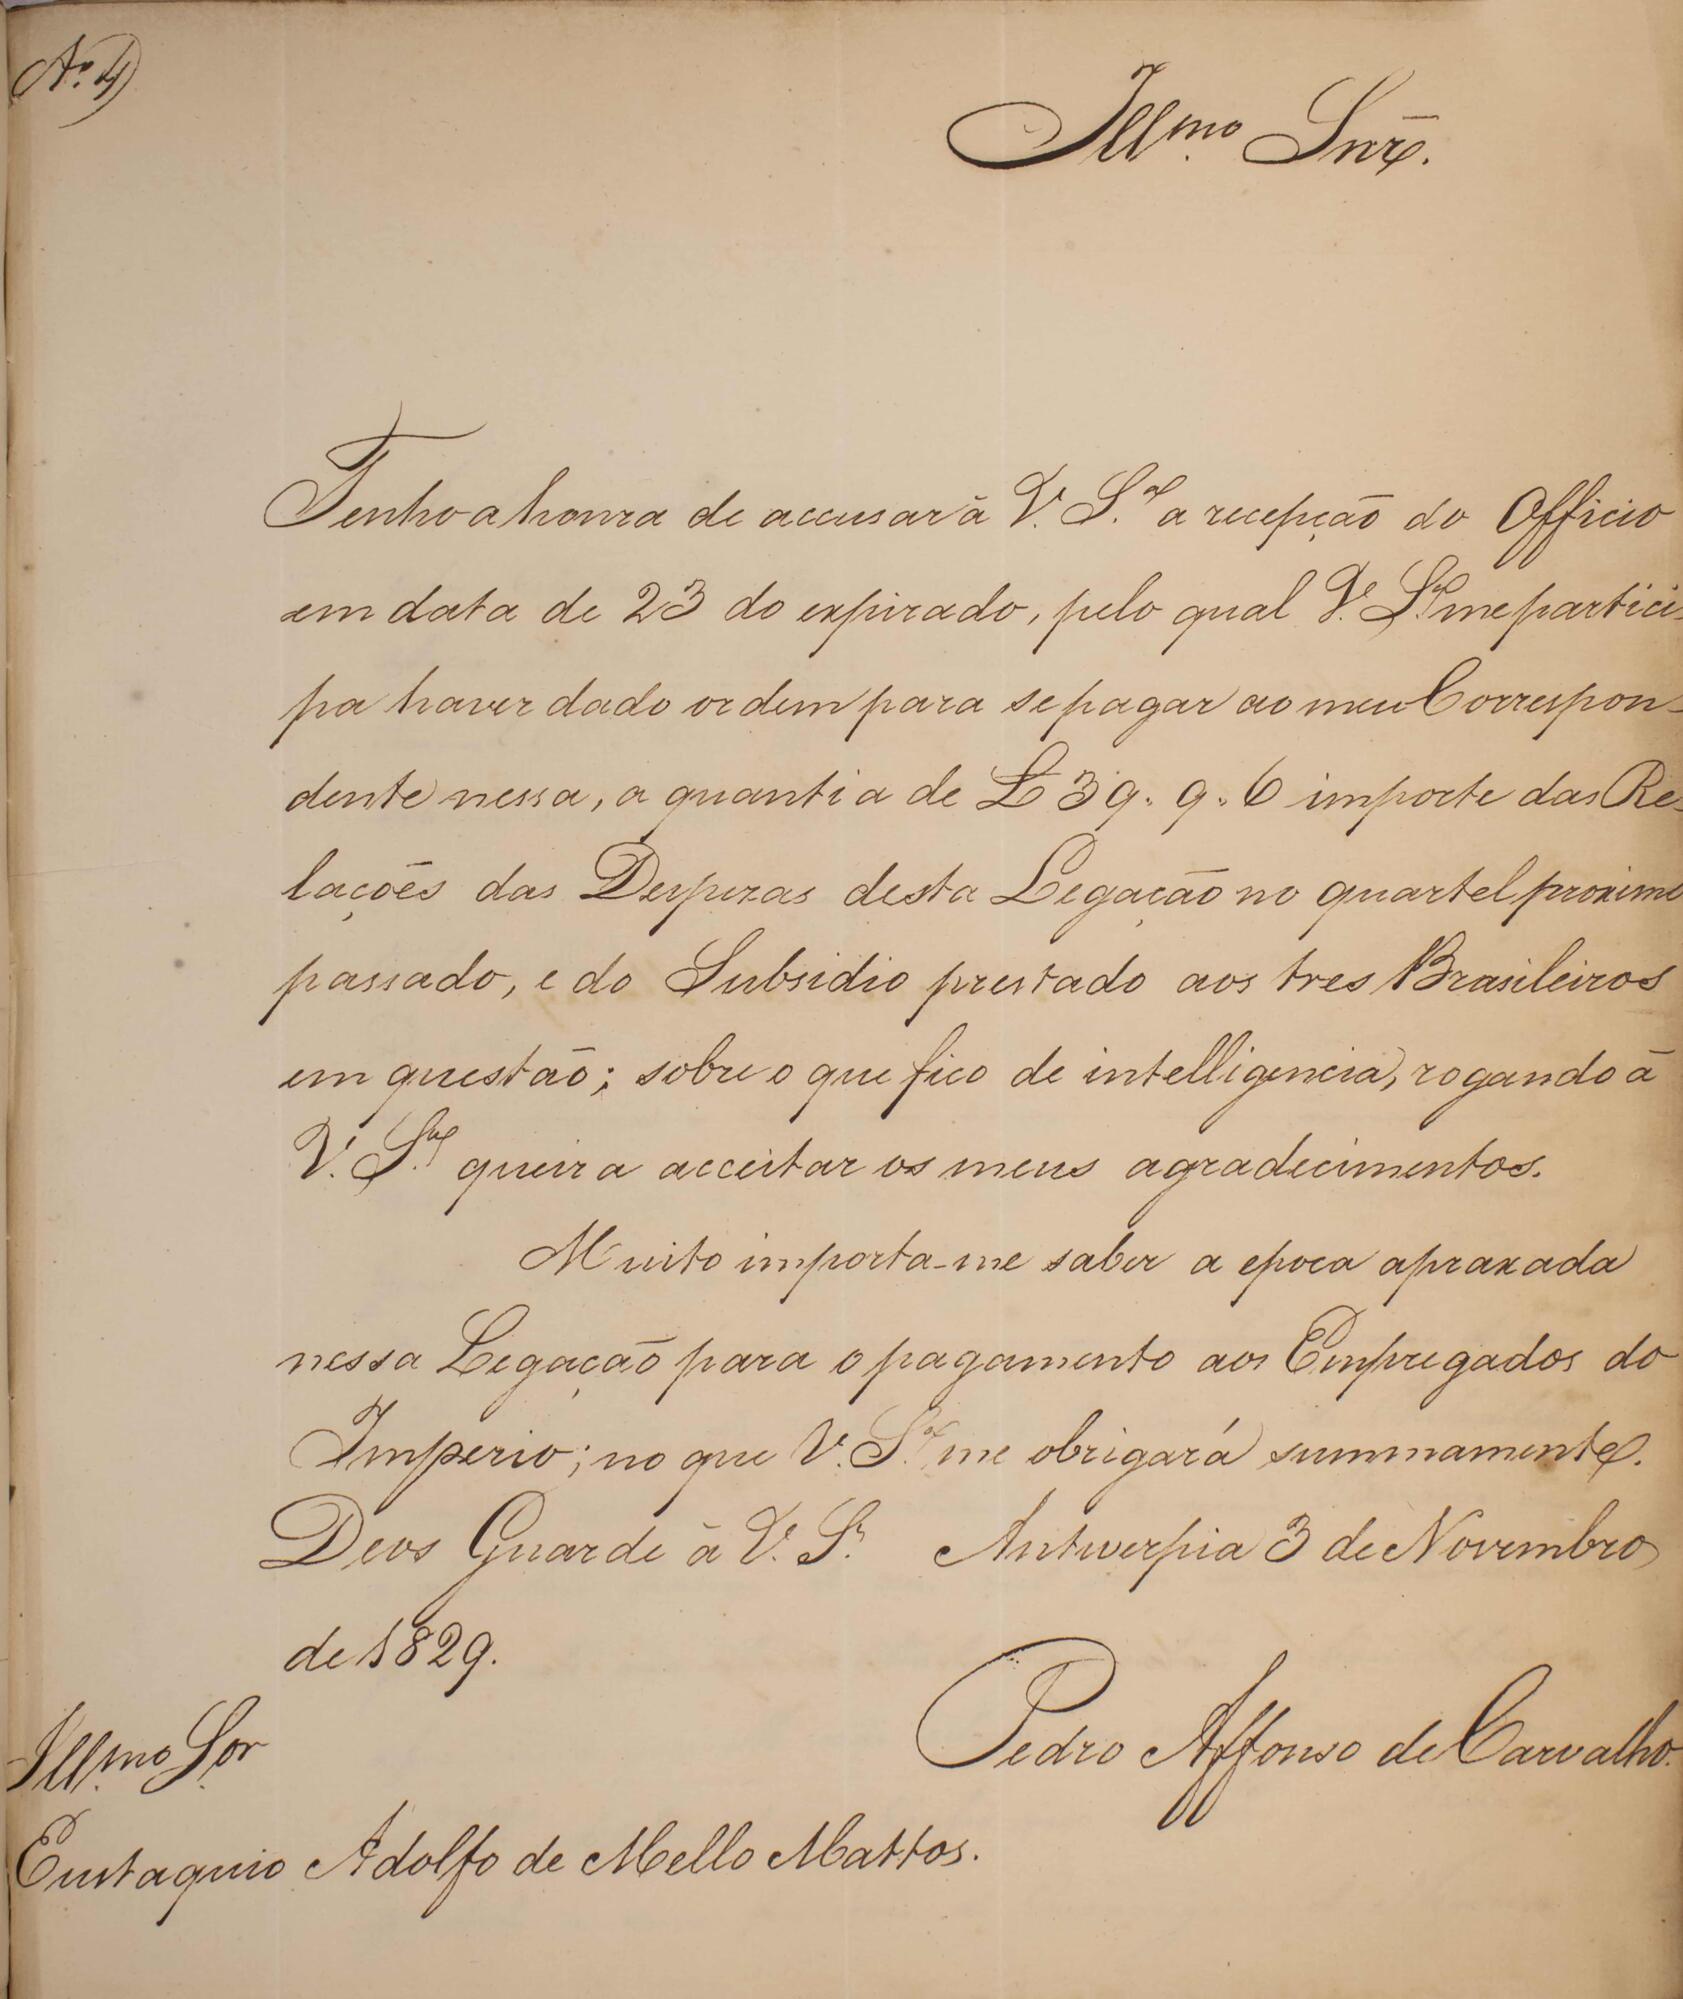 Nº 4)
Illmo Snr̃.
Tenho a honra de accusar à V. Sª a recepção do Officio
em data de 23 do expirado, pelo qual V. Sª me partici-
pa haver dado ordem para se pagar ao meu Correspon-
dente nessa, a quantia de £ 39. 9. 6 importe das Re-
lações das Despezas desta Legação no quartel proximo
passado, e do Subsidio prestado aos tres Brasileiros
em questão; sobre o que fico de intelligencia, rogando à
V. Sª queira acceitar os meus agradecimentos.
Muito importa-me saber a epoca aprazada
nessa Legação para o pagamento aos Empregados do
Imperio; no que V. Sª me obrigará summamente.
Deos Guarde à V. Sª. Antwerpia 3 de Novembro
de 1829.
Pedro Affonso de Carvalho.
Illmo Sor
Eustaquio Adolfo de Mello Mattos.